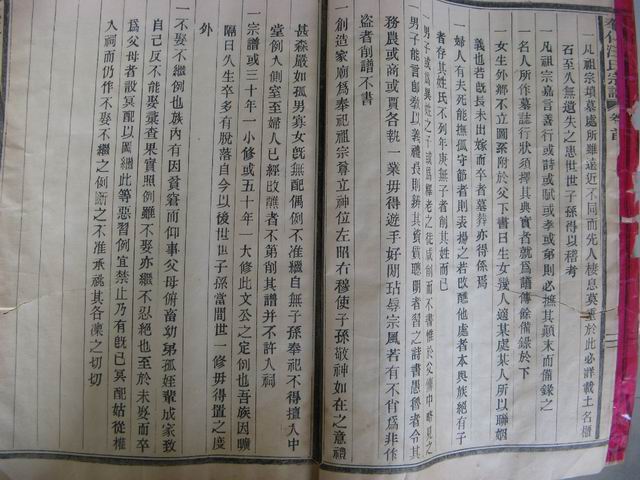 一凡祖宗墳墓處所雖遠近不同而先人棲息莫重於此必詳載土名樹
石至久無遺失之患世世子孫得以稽考
一凡祖宗嘉言善行或詩或賦或孝或弟則必摭其顛末而備錄之
一名人所作墓誌行狀須擇其典實者就爲譜傳餘備錄於下
一女生外鄉不立圖系附於父下書曰生女幾人適某處某人所以聯姻
義也若旣長未出嫁而卒者墓葬亦得係焉
一婦人有夫死能撫孤守節者則表揚之若改醮他處者本與族絕有子
者存其姓氏不列年庚無子者削其姓而已
一男子或爲異姓之子或爲釋老之徒咸削而不書惟於父傳中略見之
一男子能言卽敎以義禮長則擴其資質聰明者習之詩書愚魯者令其
務農或商或賈各執一業毋得遊手好閒玷辱宗風若有不肖爲非作
盜者削譜不書
一創造家廟爲奉祀祖宗尊立神位左昭右穆使子孫敬神如在之意禮
甚森嚴如孤男寡女旣無配偶例不准繼自無子孫奉祀不得擅入中
堂例入側室至婦人已經改醮者不第削其譜并不許入祠
一宗譜或三十年一小修或五十年一大修此文公之定例也吾族因曠
隔日久生卒多有脫落自今以後世世子孫當間世一修毋得置之度
外
一不娶不繼例也族內有因貧窘而仰事父母俯畜幼弟孤姪輩成家致
自己反不能娶彙查果實照例雖不娶亦繼不忍絕也至於未娶而卒
爲父母者設冥配以圖繼此等惡習例宜禁止乃有旣已冥配姑從權
入祠而仍作不娶不繼之例斷之不准承祧其各凜之切切